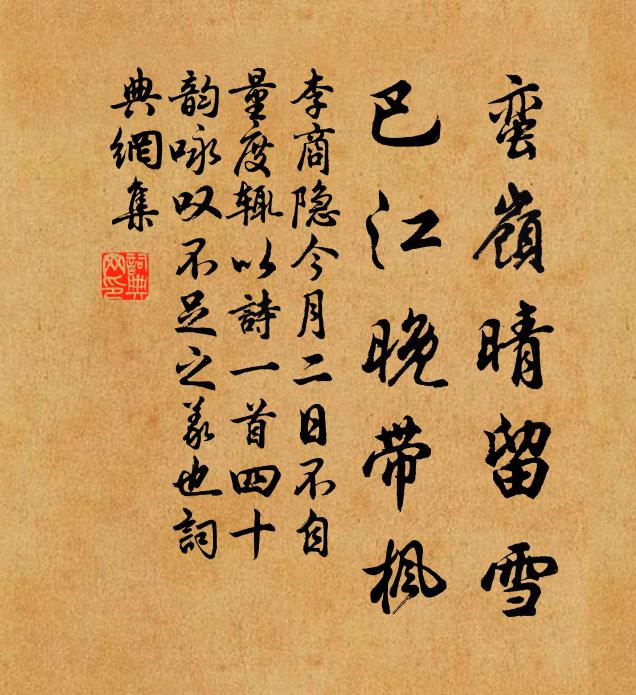 蛮嶺晴留雪
巴江晚带枫
李商隐今月二日不自
量度辄以詩一首四十
韵咏叹不足之義也詞
典網集
詞典网印